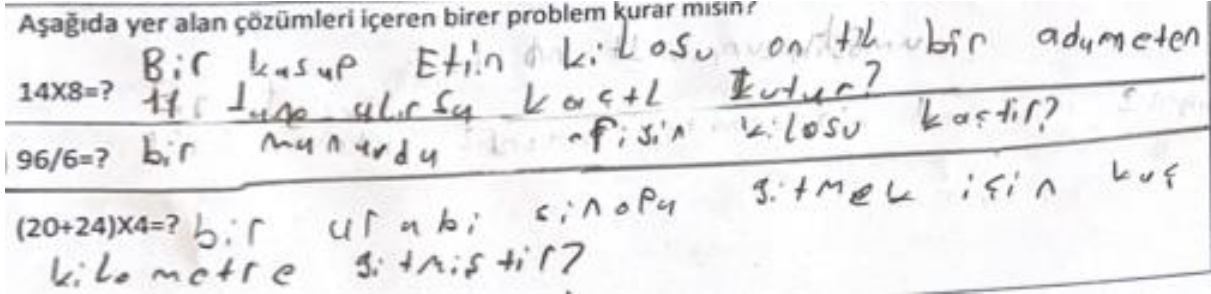 Aşağıda yer alan çözümleri içeren birer problem kurar mısın?
Bir kasap Etin kiLosu on tL bir adam eten
14X8=? alırsa kaçtL tutur?
96/6=? bir manavda kilosu kaçtir?
(20+24)X4=? bir arabi sinopa gitmek için kaç
kilometre gitmiştir?